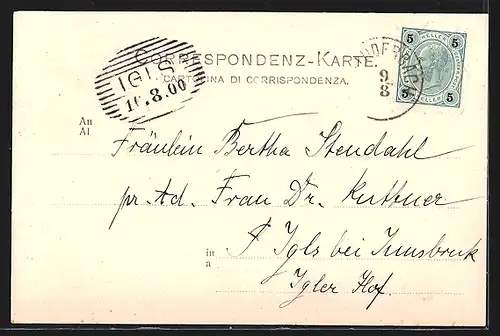 CORRESPONDENZ-KARTE.
CARTOLINA DI CORRISPONDENZA.
IGLS
10.8.00
9
8
5 HELLER 5
5 HELLER 5
An
Al
Fräulein Bertha Stendahl
pr. Ad. Frau Dr. Kuttner
in
a
Igls bei Innsbruk
Igler Hof.